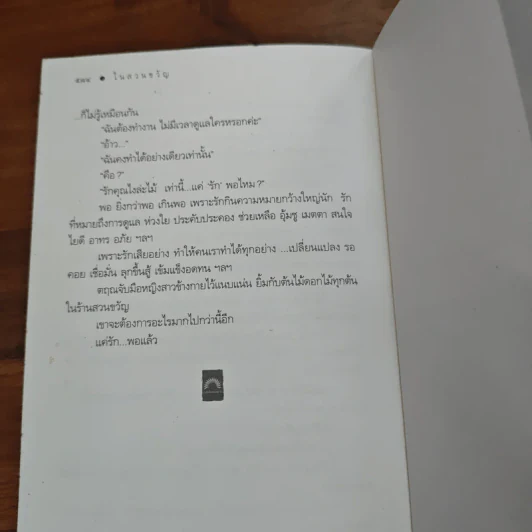 ๕๗๔ ● ในสวนขวัญ
...ก็ไม่รู้เหมือนกัน
"ฉันต้องทำงาน ไม่มีเวลาดูแลใครหรอกค่ะ"
"อ้าว..."
"ฉันคงทำได้อย่างเดียวเท่านั้น"
"คือ?"
"รักคุณไงล่ะไม้ เท่านี้...แค่ 'รัก' พอไหม?"
พอ ยิ่งกว่าพอ เกินพอ เพราะรักกินความหมายกว้างใหญ่นัก รัก
ที่หมายถึงการดูแล ห่วงใย ประคับประคอง ช่วยเหลือ อุ้มชู เมตตา สนใจ
ไยดี อาทร อภัย ฯลฯ
เพราะรักเสียอย่าง ทำให้คนเราทำได้ทุกอย่าง ...เปลี่ยนแปลง รอ
คอย เชื่อมั่น ลุกขึ้นสู้ เข้มแข็งอดทน ฯลฯ
ตฤณจับมือหญิงสาวข้างกายไว้แนบแน่น ยิ้มกับต้นไม้ดอกไม้ทุกต้น
ในร้านสวนขวัญ
เขาจะต้องการอะไรมากไปกว่านี้อีก
แค่รัก...พอแล้ว